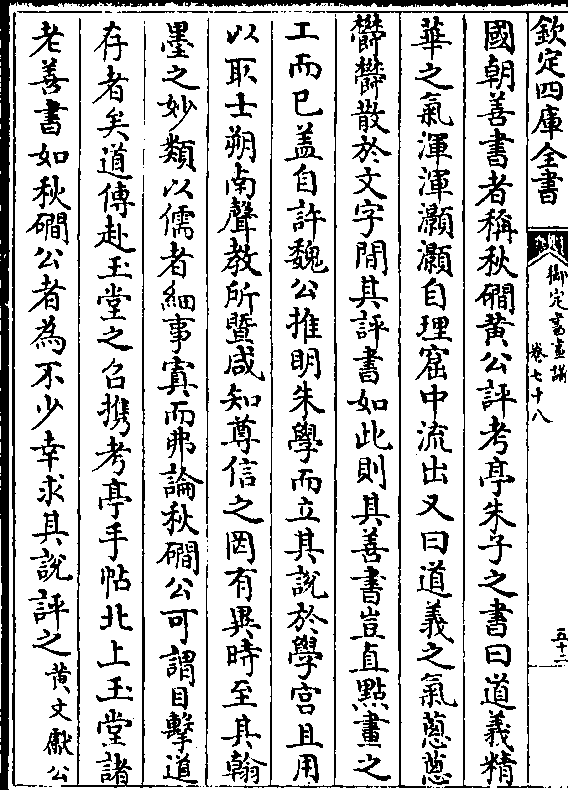 欽定四庫全書
御定書畫譜
卷七十八
五十二
國朝善書者稱秋磵黄公評考亭朱子之書曰道義精
華之氣渾渾灝灝自理窟中流出又曰道義之氣蔥蔥
鬱鬱散於文字間其評書如此則其善書豈直點畫之
工而已蓋自許魏公推明朱學而立其說於學宮且用
以取士朔南聲教所暨咸知尊信之罔有異時至其翰
墨之妙類以儒者細事寘而弗論秋磵公可謂目擊道
存者矣道傳赴玉堂之召攜考亭手帖北上玉堂諸
老善書如秋磵公者為不少幸求其說評之黄文獻公